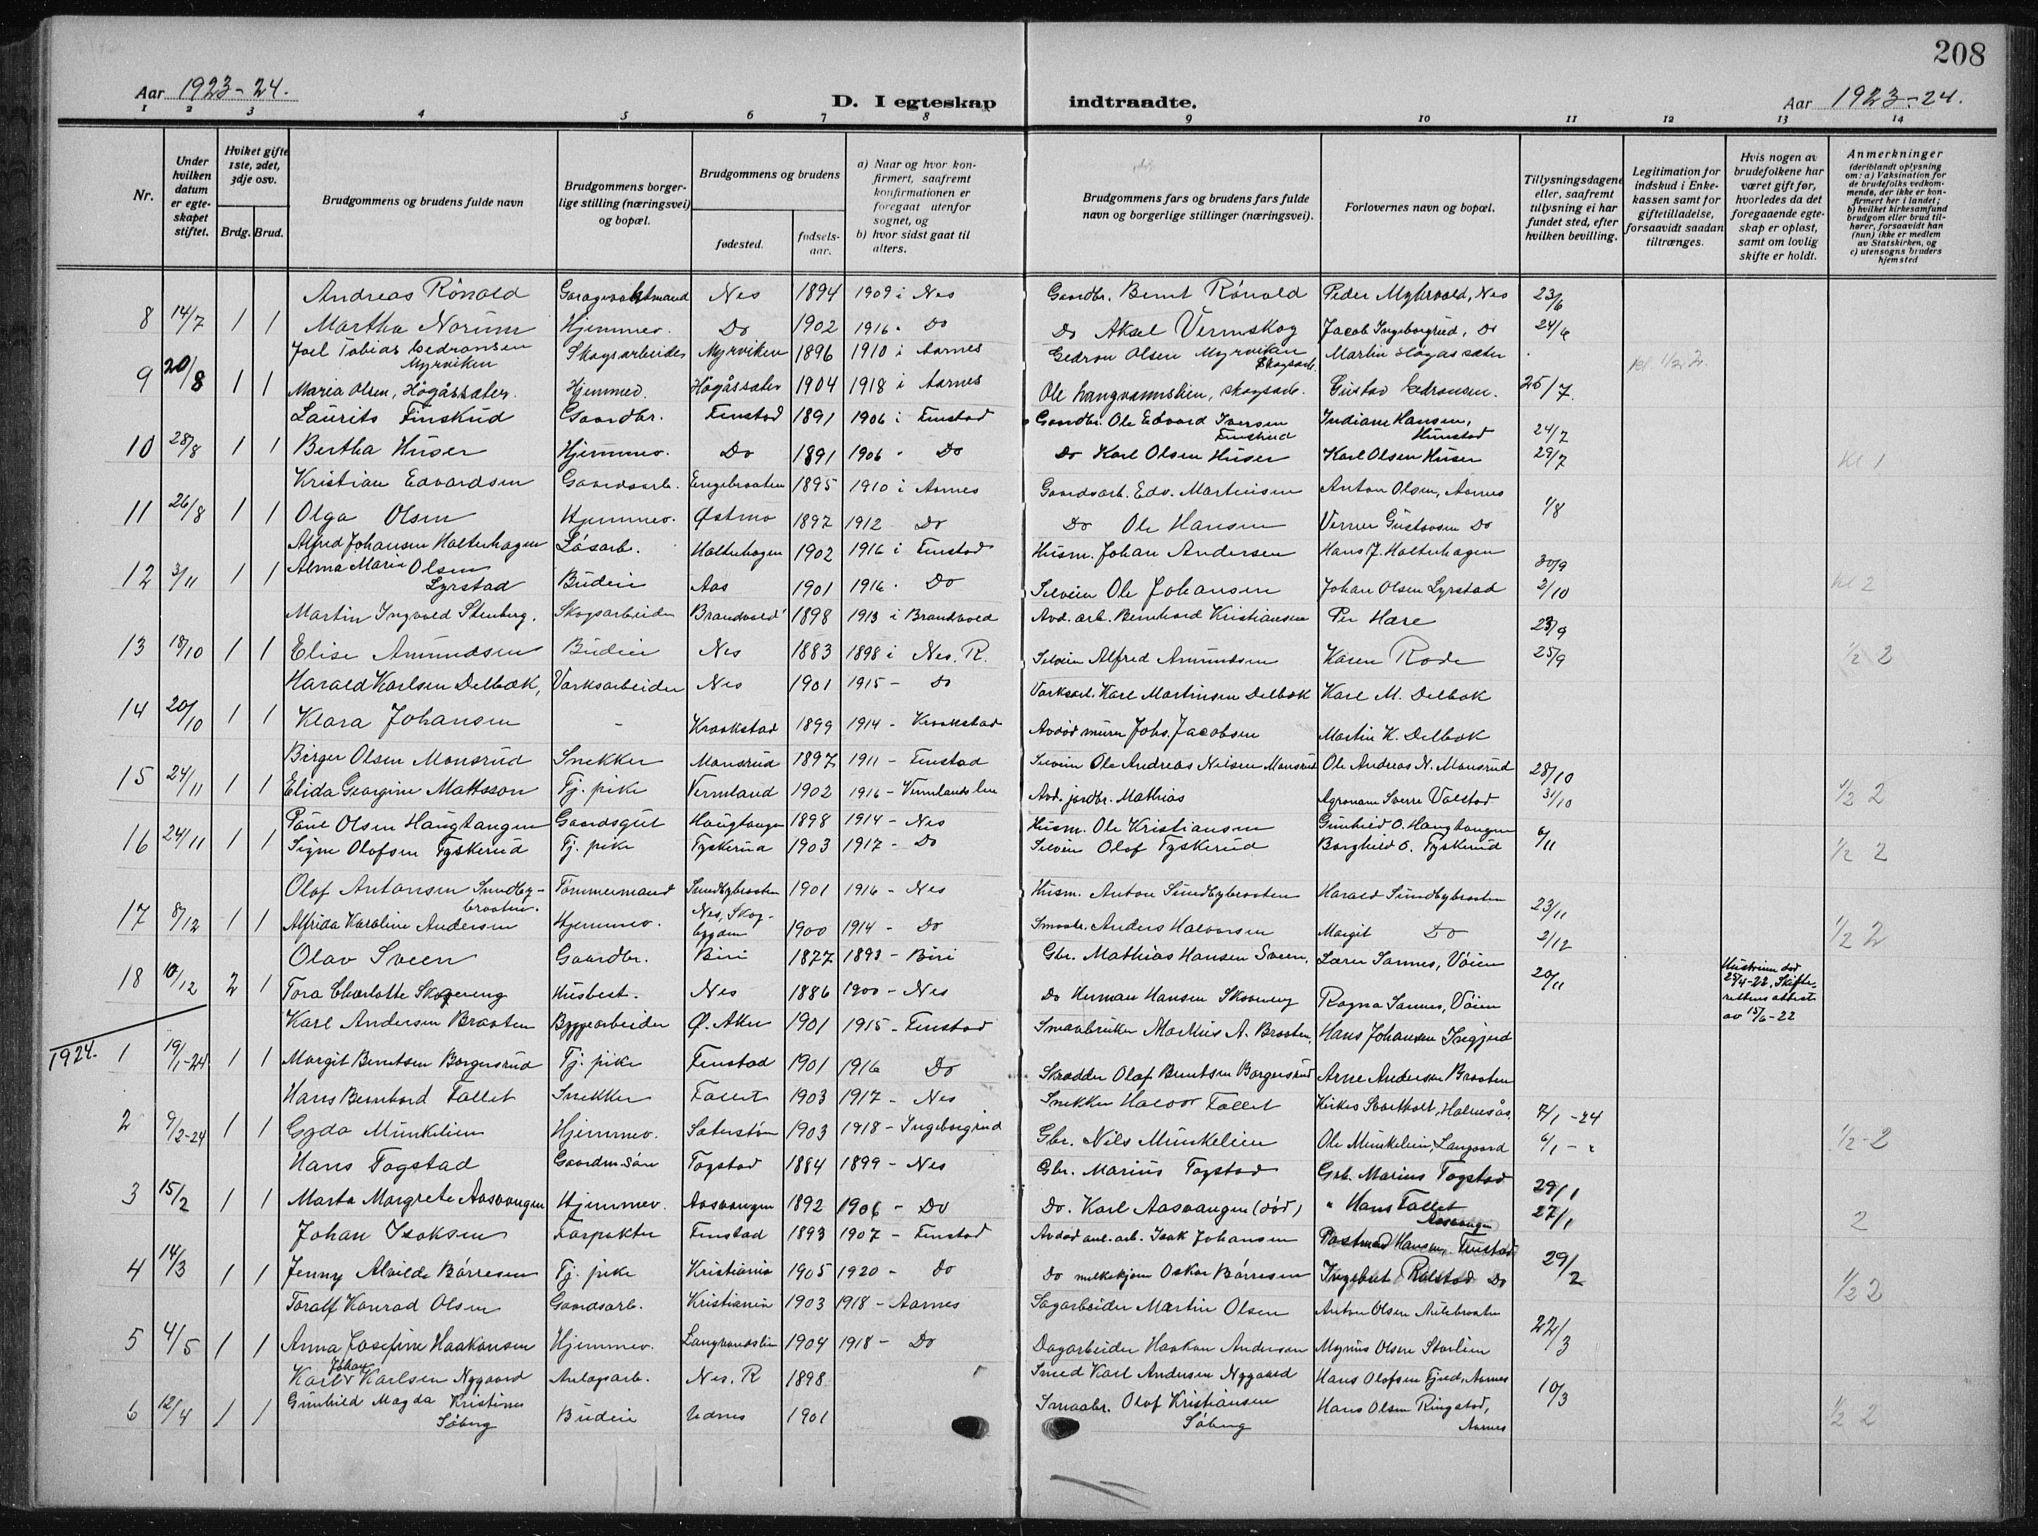 208
Aar 1923-24. D. I egteskap indtraadte. Aar 1923-24.
1 2 3 4 5 6 7 8 9 10 11 12 13 14
Nr.
Under hvilken datum er egteskapet stiftet.
Hviket gifte 1ste, 2det, 3dje osv.
Brdg. Brud.
Brudgommens og brudens fulde navn
Brudgommens borgerlige stilling (næringsvei) og bopæl.
Brudgommens og brudens
fødested. fødselsaar.
a) Naar og hvor konfirmert, saafremt konfirmationen er foregaat utenfor sognet, og
b) hvor sidst gaat til alters.
Brudgommens fars og brudens fars fulde navn og borgerlige stillinger (næringsvei).
Forlovernes navn og bopæl.
Tillysningsdagene eller, saafremt tillysning ei har fundet sted, efter hvilken bevilling.
Legitimation for indskud i Enkekassen samt for giftetilladelse, forsaavidt saadan tiltrænges.
Hvis nogen av brudefolkene har været gift før, hvorledes da det foregaaende egteskap er opløst, samt om lovlig skifte er holdt.
Anmerkninger (deriblandt oplysning om: a) Vaksination for de brudefolks vedkommende, der ikke er konfirmert her i landet; b) hvilket kirkesamfund brudgom eller brud tilhører, forsaavidt han (hun) ikke er medlem av Statskirken, og c) utensogns bruders hjemsted
Andreas Rönold Garagevaktmand Nes 1894 1909 i Nes Gaardbr. Bernt Rönold Peder Myhrvold, Nes 23/6
8 14/7 1 1 Martha Norum Hjemmev. Do 1902 1916 - Do Do Aksel Vermskog Jacob Ingeborgrud, Do 24/6
Joel Tobias Gedronsen Myrviken Skogsarbeider Myrviken 1896 1910 i Aarnes Gedron Olsen Myrviken Skogsarb. Martin Høgassæter
9 20/8 1 1 Maria Olsen, Högåssæter. Hjemmev. Högåssæter 1904 1918 i Aarnes Ole Langvannslien, skogsarb. Gustav Gedronsen. 25/7.
Laurits Finskud Gaardbr. Fenstad 1891 1906 i Fenstad Gaardbr. Ole Edvard Iversen Finstrud Indiane Hansen, Hunstad 24/7
10 28/8 1 1 Bertha Huser Hjemmev. Do 1891 1906 - Do Do Karl Olsen Huser Karl Olsen Huser 29/7 Kl 1
Kristian Edvardsen Gaardsarb. Engebraaten 1895 1910 i Aarnes Gaardsarb. Edv. Martinsen Anton Olsen, Aarnes
11 26/8 1 1 Olga Olsen Hjemmev. Østmo 1897 1912 Do Do Ole Hansen Verner Gustavsen Do 1/8
Alfred Johansen Holterhagen Løsarb. Holterhagen 1902 1916 i Fenstad Husm. Johan Andersen Hans J. Holterhagen 30/9
12 3/11 1 1 Alma Marie Olsen Lyrstad Budeie Aas 1901 1916 - Do Selveier Ole Johansen Johan Olsen Lyrstad 2/10 Kl 2
Martin Ingvald Stenberg. Skogsarbeider Brandvold 1898 1913 i Brandvold Avd. arb. Bernhard Kristiansen Per Hare 23/9
13 18/10 1 1 Elise Amundsen Budeie Nes 1883 1898 i Nes. R. Selveier Alfred Amundsen Karen Rode 25/9 1/2 2
Harald Karlsen Delbæk, Værksarbeider Nes 1901 1915 - Do Værksarb. Karl Martinsen Delbæk Karl M. Delbæk
14 20/10 1 1 Klara Johansen - Kraakstad 1899 1914 - Kraakstad Avdød murer Johs. Jacobsen Martin K. Delbæk
Birger Olsen Monsrud Snekker Monsrud 1897 1911 - Fenstad Selveier Ole Andreas Nilsen Monsrud Ole Andreas N. Monsrud 28/10
15 24/11 1 1 Elida Georgine Mattsson Tj. pike Vermland 1902 1916 - Vermlands len Avd. jordbr. Mathias Agronom Sverre Valstad 31/10 1/2 2
Paul Olsen Haugtangen Gaardsgut Haugtangen 1898 1914 - Nes Husm. Ole Kristiansen Gunhild O. Haugtangen
16 24/11 1 1 Signe Olafsen Fyskerud Tj. pike Fyskerud 1903 1917 - Do Selveier Olaf Fyskerud Borghild O. Fyskerud 6/11 1/2 2
Olaf Antonsen Sundbybraaten. Tømmermand Sundbybraaten 1901 1916 - Nes Husm. Anton Sundbybraaten Harald Sundbybraaten 23/11
17 8/12 1 1 Alfrida Karoline Andersen Hjemmev. Nes, Skogbygden 1900 1914 - Do Smaabr. Anders Halvorsen Margit Do 2/12 1/2 2
Olav Sveen Gaardbr. Biri 1877 1893 - Biri Gbr. Mathias Hansen Sveen. Lærer Sannes, Vöien 20/11
18 10/12 2 1 Tora Charlotte Skogereng Husbest. Nes 1886 1900 - Nes Do Herman Hansen Skovereng Ragna Sannes, Vöien
Hustruen død 25/4-22. Skifterettens attest av 15/6-22
1924.
Karl Andersen Braaten Byggearbeider Ø. Aker 1901 1915 - Fenstad Smaabruker Markus A. Braaten. Hans Johansen Ingjerd
1 19/1-24 1 1 Margit Berntsen Borgersrud Tj. pike Fenstad 1901 1916 Do Skrædder Olaf Berntsen Borgersrud Arne Andersen Braaten
Hans Bernhard Fallet Snekker Fallet 1903 1917 - Nes Snekker Halvor Fallet Kirkes. Svartholt, Halmsås. 7/1-24
2 9/2-24 1 1 Gyda Munkelien Hjemmev. Sæterstøen 1903 1918 - Ingeborgrud Gbr. Nils Munkelien Ole Munkelien, Langaard 6/1 - " 1/2-2
Hans Fogstad Gaardm. søn Fogstad 1884 1899 - Nes Gbr. Marius Fogstad Grb. Marius Fogstad 29/1
3 15/2 1 1 Marta Margrete Aasvangen Hjemmev. Aasvangen 1892 1906 - Do Do. Karl Aasvangen (død) " Hans Fallet Aasvangen 27/1 2
Johan Isaksen Forpakter Fenstad 1893 1907 - Fenstad Avdød anl. arb. Isak Johansen Postmand Hansen, Fenstad
4 14/3 1 1 Jenny Alvilde Börresen Tj. pike Kristiania 1905 1920 - Do Do melkekjører Oskar Börresen Ingebret Rolstad Do 29/2 1/2 2
Toralf Konrad Olsen Gaardsarb. Kristiania 1903 1918 - Aarnes Sagarbeider Martin Olsen Anton Olsen
5 4/5 1 1 Anna Josefine Haakonsen Hjemmev. Langvandslien 1904 1918 - Do Dagarbeider Haakon Andersen Magnus Olsen Storlien 22/3
Karl Johan Karlsen Nygaard Anlagsarb. Nes. R 1898 Smed Karl Andersen Nygaard Hans Olafsen Fjeld, Aarnes
6 12/4 1 1 Gunhild Magda Kristine Söberg Budeie Udnes 1901 Smaabr. Olaf Kristiansen Söberg Hans Olsen Ringstad, Aarnes 10/3 1/2 2